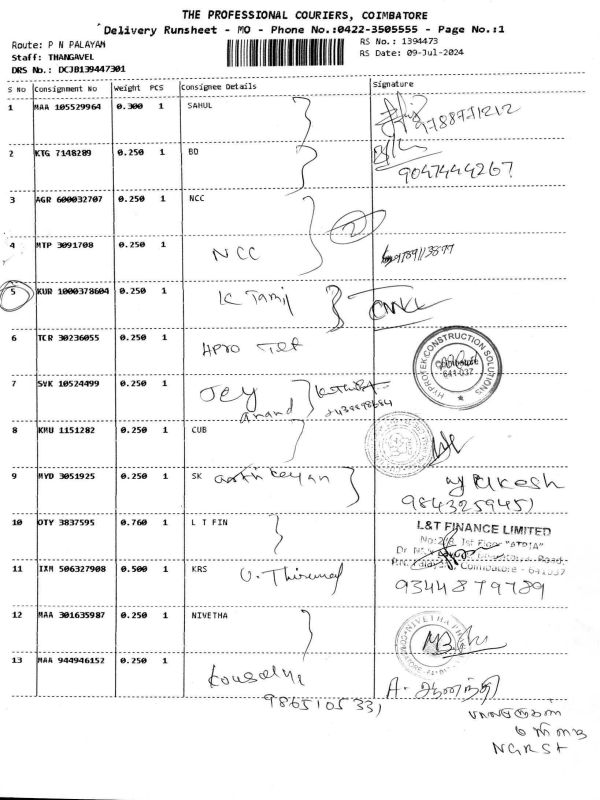 THE PROFESSIONAL COURIERS, COIMBATORE
Delivery Runsheet - MO - Phone No.:0422-3505555 - Page No.:1
Route: P N PALAYAM
RS No.: 1394473
Staff: THANGAVEL
RS Date: 09-Jul-2024
DRS No.: DCJB139447301
S No Consignment No Weight PCS Consignee Details Signature
1 MAA 105529964 0.300 1 SAHUL
9788771212
2 KTG 7148289 0.250 1 BD
9047444267
3 AGR 600032707 0.250 1 NCC
2
4 MTP 3091708 0.250 1 NCC
5 KUR 1000378604 0.250 1 K Tamil
6 TCR 30236055 0.250 1
HYPROTEK CONSTRUCTION SOLUTIONS
641-037
7 SVK 10524499 0.250 1 Jey anand
8 KMU 1151282 0.250 1 CUB
9 MYD 3051925 0.250 1 SK
9843259451
10 OTY 3837595 0.760 1 L T FIN
L&T FINANCE LIMITED
1st Floor "ATDIA"
Coimbatore - 641037
11 IXM 506327908 0.500 1 KRS
9344879789
12 MAA 301635987 0.250 1 NIVETHA
NIVETHA
13 MAA 944946152 0.250 1 Kousalya
9865105331
A. ஆனந்தி